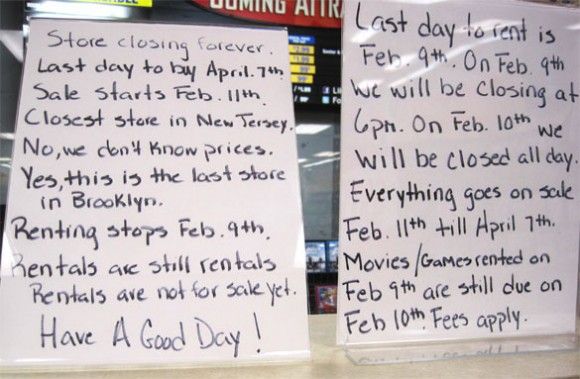 COMING ATTR
Store closing forever.
Last day to buy April. 7th.
Sale starts Feb. 11th.
Closest store in New Jersey.
No, we don't know prices.
Yes, this is the last store
in Brooklyn.
Renting stops Feb. 9th.
Rentals are still rentals
Rentals are not for sale yet.
Have A Good Day!
Last day to rent is
Feb. 9th. On Feb. 9th
we will be closing at
6pm. On Feb. 10th we
will be closed all day.
Everything goes on sale
Feb. 11th till April 7th.
Movies/Games rented on
Feb 9th are still due on
Feb 10th. Fees apply.